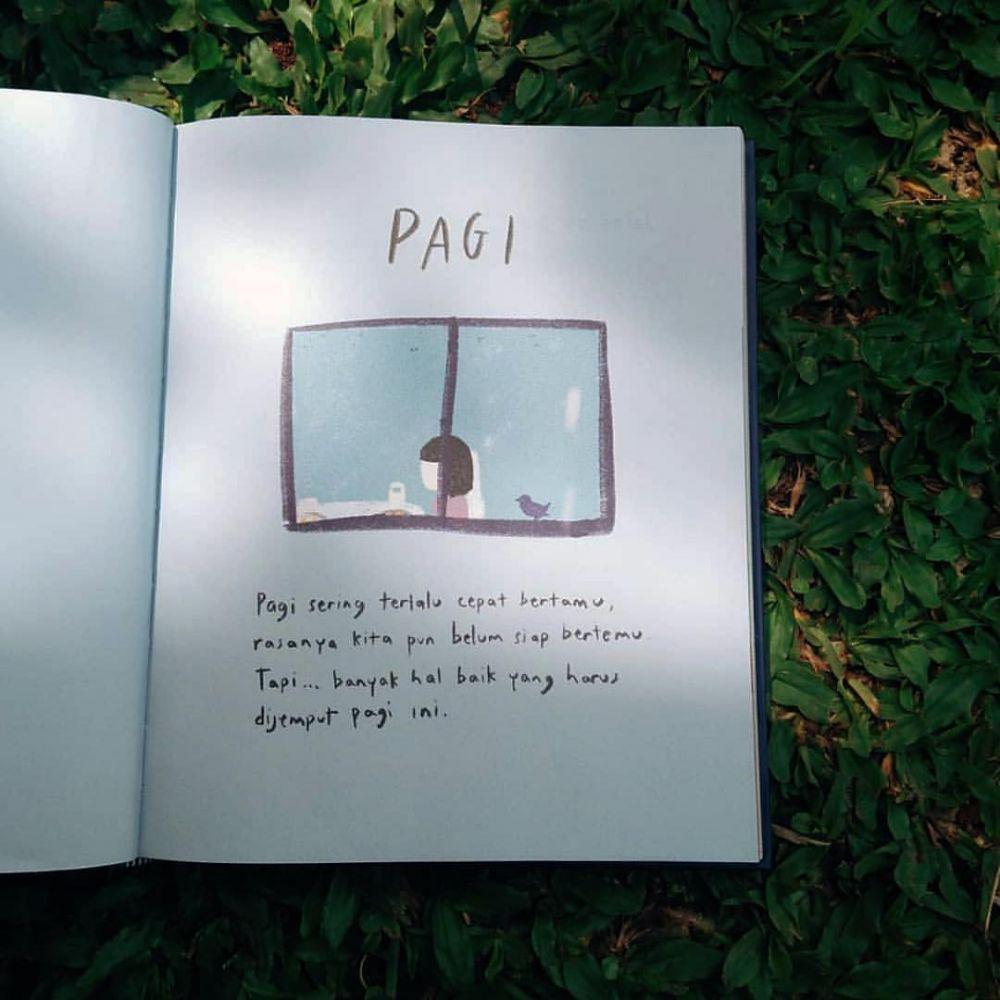 PAGI
Pagi sering terlalu cepat bertamu,
rasanya kita pun belum siap bertemu.
Tapi... banyak hal baik yang harus
dijemput pagi ini.